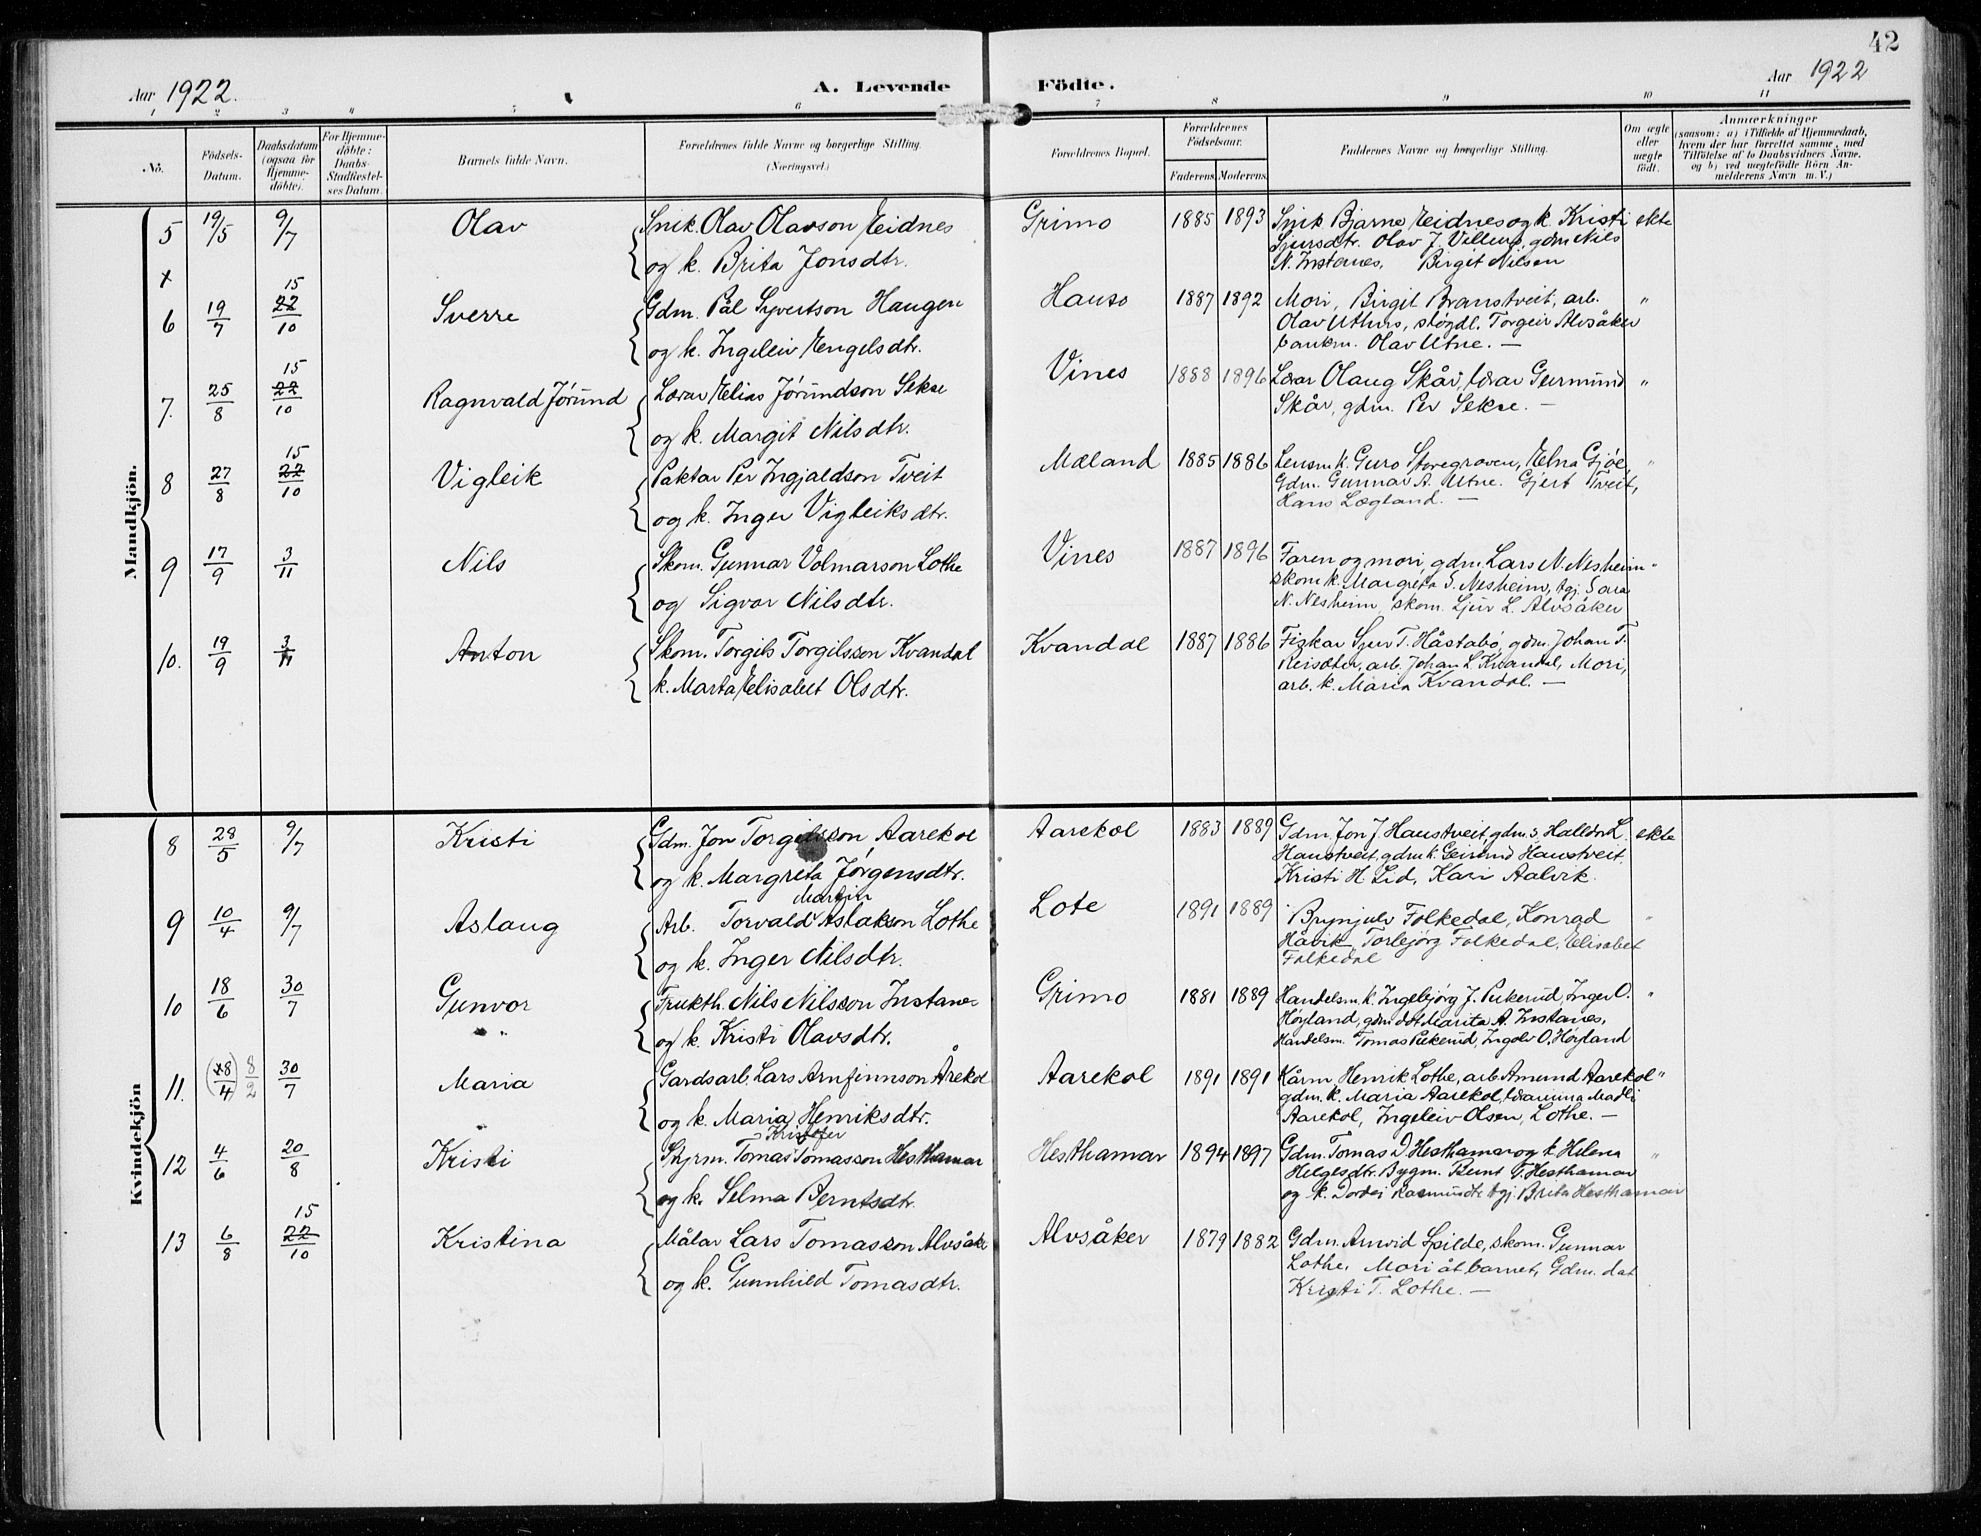 42
Aar 1922. A. Levende Födte. Aar 1922
1 2 3 4 5 6 7 8 9 10 11
No. Födsels-Datum. Daabsdatum (ogsaa for Hjemme-döbte). For Hjemme-döbte: Daabs-Stadfæstel-ses Datum. Barnets fulde Navn. Forældrenes fulde Navne og borgerlige Stilling. (Næringsvei.) Forældrenes Bopæl. Forældrenes Födselsaar. Faderens. Moderens. Faddernes Navne og borgerlige Stilling. Om ægte eller uægte födt. Anmærkninger (saasom: a) i Tilfælde af Hjemmedaab, hvem der har forrettet samme, med Tilföielse af to Daabsvidners Navne, og b) ved uægtefödte Börn An-melderens Navn m. V.)
Mandkjön.
5 19/5 9/7 Olav Snik. Olav Olavson Eidnes Grimo 1885 1893 Snik Bjarne Eidnes og k. Kristi ekte
Sjursdtr. Olav J. Velure, gdm Nils
og k. Brita Jonsdtr. N. Instanes, Birgit Nilsen
x
6 19/7 15 22/10 Sverre Gdm. Pål Syvertson Haugen Hauso 1887 1892 Mori, Birgit Branstveit, arb. "
Olav Uthus, sløgdl. Torgeir Alvsåker
og k. Ingeleiv Engelsdtr. bankm. Olav Utne. —
7. 25/8 15 22/10 Ragnvald Jórund Lærar Elias Jórundson Sekse Vines 1888 1896 Lærar Olaug Skår, lærar Geirmund "
Skår, gdm. Per Sekse. —
og k. Margit Nilsdtr.
8 27/8 15 22/10 Vigleik Paktar Per Ingjaldson Tveit Mæland 1885 1886 Lensm. k. Guro Storegraven, Elna Gjøe, "
Gdm. Gunnar A. Utne. Gjert Tveit,
og k. Inger Vigleiksdtr. Hans Lægland. —
9 17/9 3/11 Nils Skom. Gunnar Volmarson Lothe Vines 1887 1896 Faren og mori, gdm. Lars N. Nesheim "
skom k. Margreta S. Nesheim, tgj. Sara
og Sigvor Nilsdtr. N. Nesheim, skom. Sjur L. Alvsåker
10. 19/9 3/11 Anton Skom. Torgils Torgilsson Kvandal Kvandal 1887 1886 Fiskar Sjur T. Håstabø, gdm. Johan T.
Reisæter, arb. Johan L Kvandal, Mori,
k. Marta Elisabet Olsdtr. arb. k. Maria Kvandal. —
Kvindekjön
8 28/5 9/7 Kristi Gdm. Jon Torgilsson Aarekol Aarekol 1883 1889 Gdm. Jon J. Haustveit, gdm. s. Halldor L. ekte
Haustveit, gdm k. Geirund Haustveit,
og k. Margreta Jørgensdtr. Kristi H. Lid, Kari Aalvik.
9 10/4 9/7 Aslaug Arb. Torvald Martin Aslakson Lothe Lote 1891 1889 Brynjulv Folkedal, Konrad "
Håvik, Torbjørg Folkedal, Elisabet
og k. Inger Nilsdtr. Folkedal
10 18/6 30/7 Gunvor Frukth. Nils Nilsson Instanes Grimo 1881 1889 Handelsm. k. Ingebjørg J. Pukerud, Inger O. "
Høyland, gdm dot Marita A. Instanes,
og k. Kristi Olavsdtr. Handelsm. Tomas Pukerud, Ingolv O. Høyland
11. (28/4) 8/2 30/7 Maria Gardsarb. Lars Arnfinnson Årekol Aarekol 1891 1891 Kårm. Henrik Lothe, arb. Amund Aarekol "
gdm. k. Maria Aarekol, lærarinna Madli
og k. Maria Henriksdtr. Aarekol, Ingeleiv Olsen, Lothe. —
12 4/6 20/8 Kristi Styrm. Tomas Kristofer Tomasson Hesthamar Hesthamar 1894 1897 Gdm. Tomas D Hesthamar og k Helena "
Helgesdtr. Bygm. Bernt T. Hesthamar
og k. Selma Berntsdtr. og k. Dordei Rasmusdtr tgj. Brita Hesthamar
13 6/8 15 22/10 Kristina Målar Lars Tomasson Alvsåker Alvsåker 1879 1882 Gdm. Arnvid Spilde, skom. Gunnar
Lothe, Mori åt barnet, Gdm. dot
og k. Gunnhild Tomasdtr. Kristi T. Lothe. —